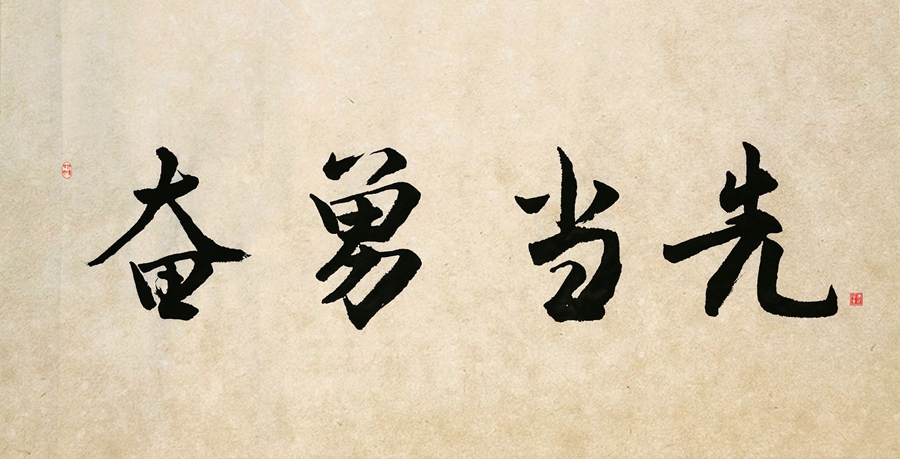 奋勇当先